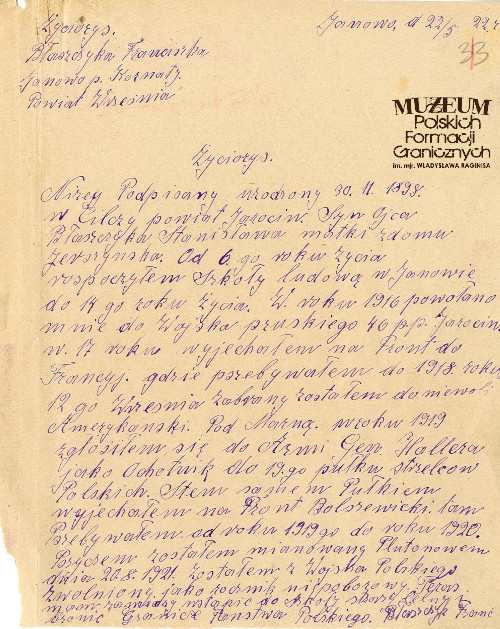 Życiorys.
Błaszczyka Franciszka
Janowo p. Kornaty.
Powiat Września
Janowo, d 22/5 22 r
33
MUZEUM
Polskich
Formacji
Granicznych
im. mjr. WŁADYSŁAWA RAGINISA
Życiorys.
Niżej Podpisany urodzony 30.11.1898.
w Cilczy powiat Jarocin. Syn Ojca
Błaszczyka Stanisława matki zdomu
Od 6.go. roku życia
rospoczyłem Szkołę ludową w Janowie
do 14 go roku życia. W. roku 1916 powołano
mnie do Wojska pruskiego 46 p.p. Jarocin.
w. 17 roku wyjechałem na Front do
Francyj. gdzie przebywałem do 1918. roku
12 go Września zabrany zostałem do niewoli
Amerykański. Pod Marną. w roku 1919
zgłosiłem się do Armi Gen. Hallera
jako Ochotnik do 19.go pułku strzelcow
Polskich. Stem samem Pułkiem
wyjechałem na Front Bolszewicki. tam
Przebywałem od roku 1919 go do roku 1920.
Przyczem zostałem mianowany Plutonowem
dnia 26.8. 1921. zostałem z Wojska Polskiego
zwolniony, jako rocznik niepoborowy. Teras
mam zamiary wstąpić do szkoły straży celnej
bronić Granice Państwa Polskiego. Błaszczyk Franc